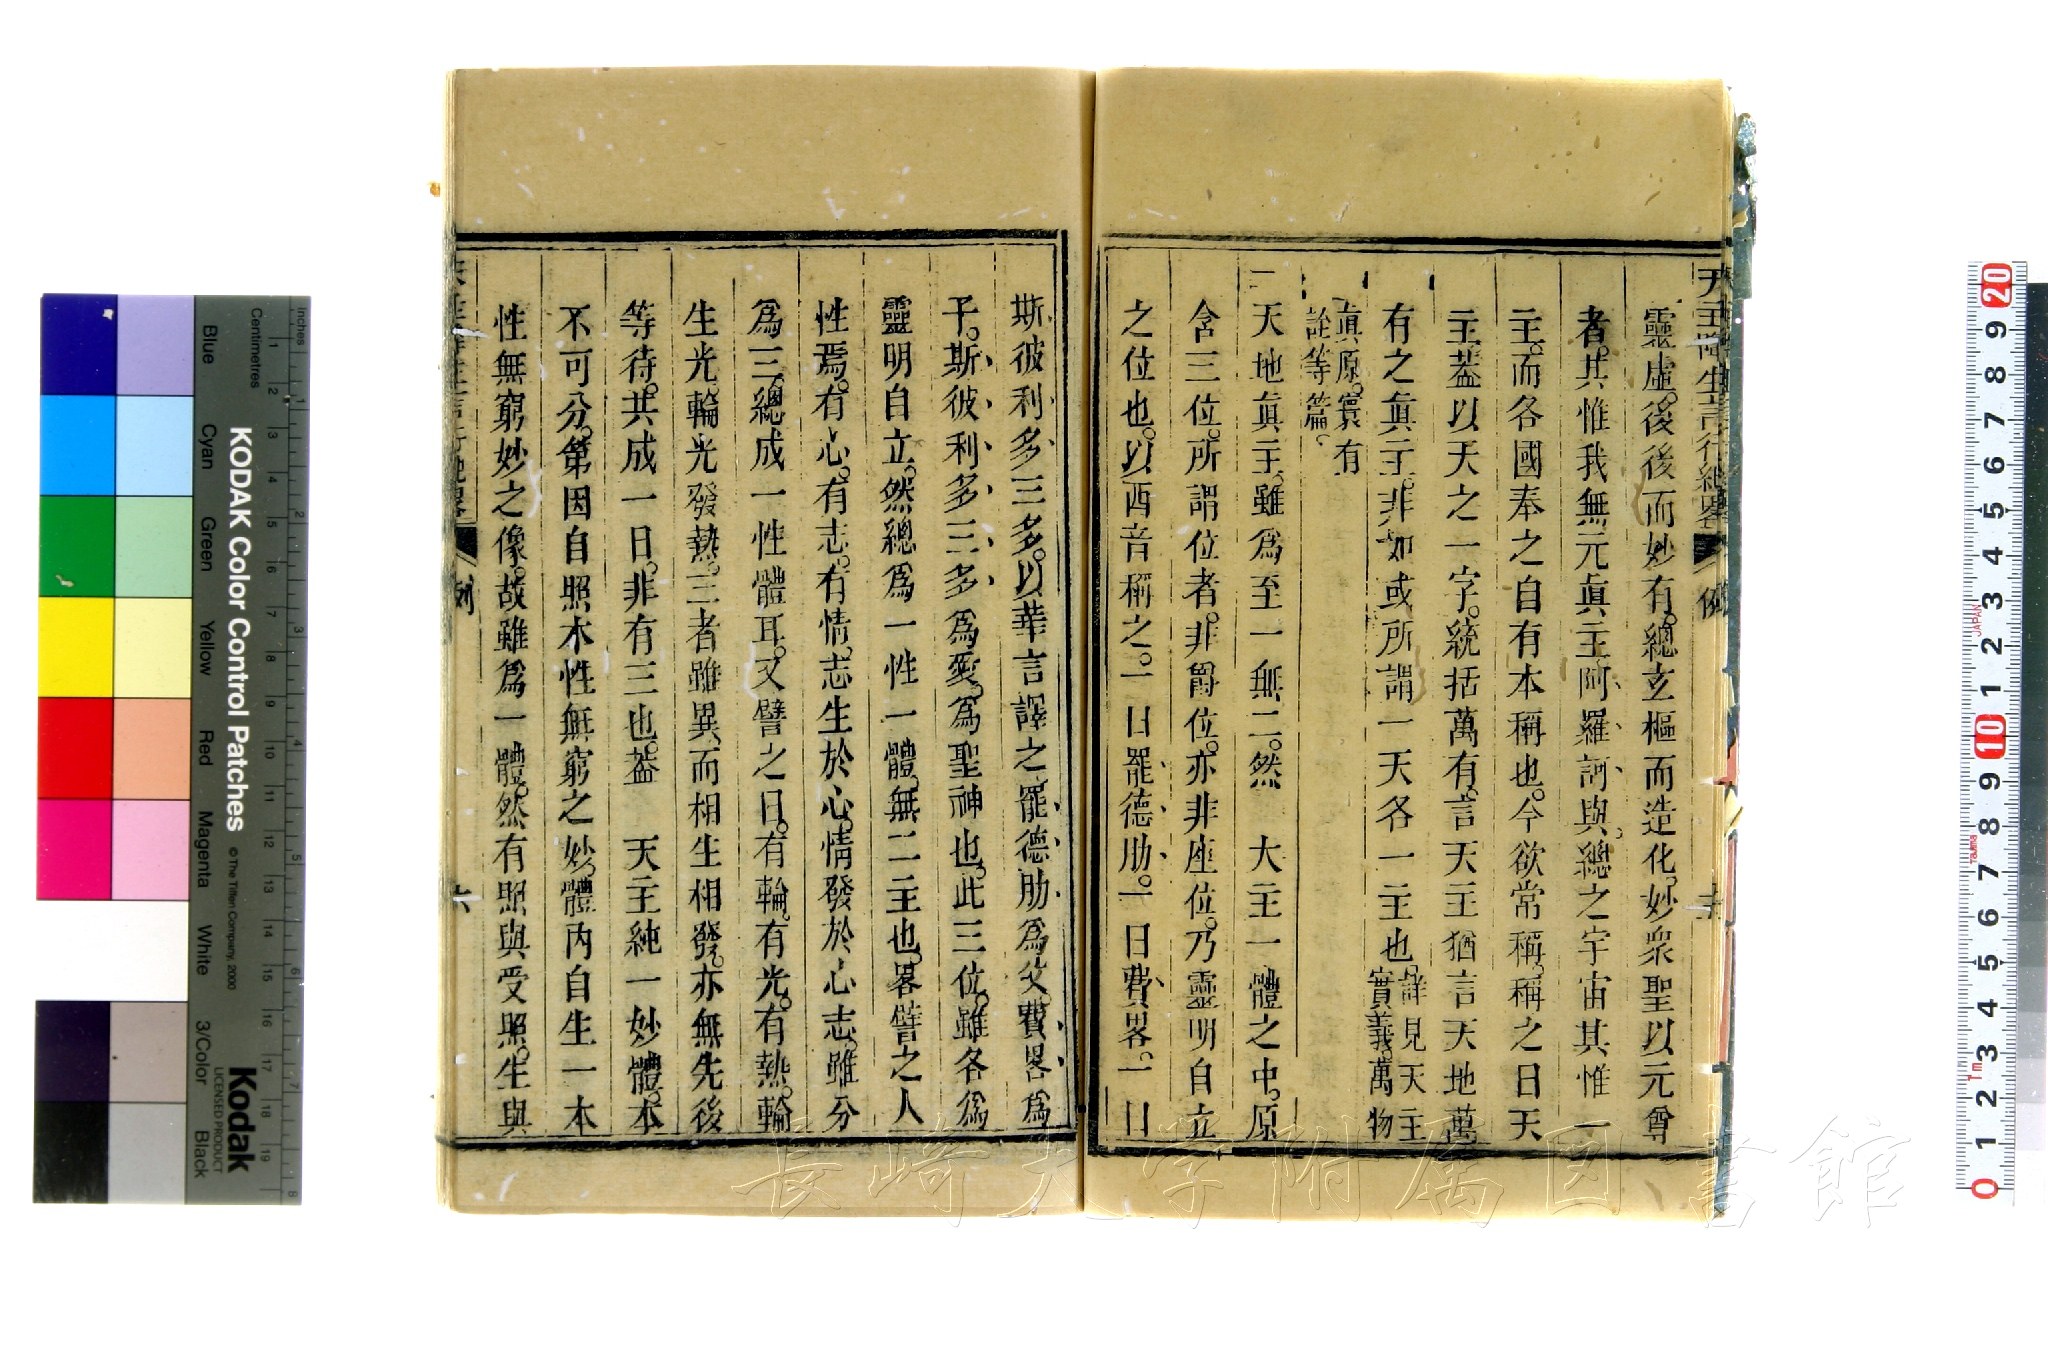 天主降生言行紀畧 例
靈虛。後後而妙有。總玄樞而造化。妙衆聖以元尊
者。其惟我無元眞主阿羅訶與。總之宇宙其惟一
主。而各國奉之自有本稱也。今欲常稱。稱之曰天
主。葢以天之一字。統括萬有。言天主猶言天地萬
有之眞主。非如或所謂一天各一主也。詳見天主
實義。萬物
眞原。寰有
詮等篇。
一天地眞主。雖爲至一無二。然 大主一體之中。原
含三位。所謂位者。非爵位。亦非座位。乃靈明自立
之位也。以西音稱之。一曰罷德肋。一曰費畧。一曰
斯彼利多三多。以華言譯之。罷德肋爲父。費畧爲
子。斯彼利多三多爲愛。爲聖神也。此三位。雖各爲
靈明自立。然總爲一性一體。無二主也。畧譬之人
性焉。有心。有志。有情。志生於心。情發於心志。雖分
爲三。總成一性體耳。又譬之日。有輪。有光。有熱。輪
生光。輪光發熱。三者雖異。而相生相發。亦無先後
等待。共成一日。非有三也。葢 天主純一妙體。本
不可分。第因自照本性無窮之妙。體內自生一本
性無窮妙之像。故雖爲一體。然有照與受照。生與
天主降生言行紀畧 例 六
KODAK Color Control Patches
© The Tiffen Company, 2000
Kodak
LICENSED PRODUCT
Inches
Centimetres
Blue
Cyan
Green
Yellow
Red
Magenta
White
3/Color
Black
長崎大学附属図書館
JAPAN
Tajima
1m